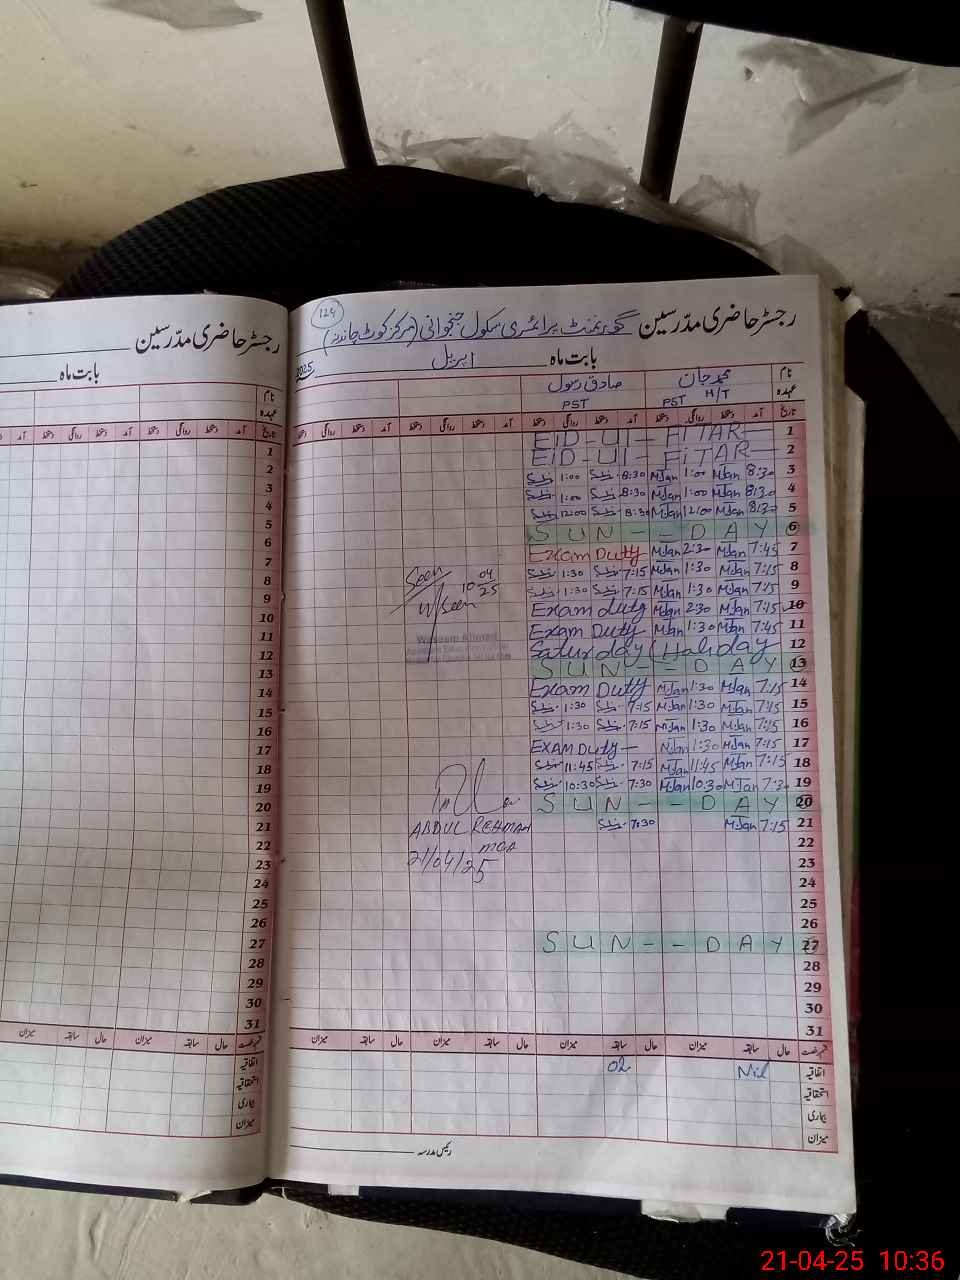 رجسٹر حاضری مدّرسین
بابت ماہ
124
رجسٹر حاضری مدّرسین گورنمنٹ پرائمری سکول جنجوانی (مرکز کوٹ چاندنہ)
بابت ماہ اپریل 2025
نام محمد جان صادق رسول
عہدہ PST H/T PST
تاریخ آمد دستخط روانگی دستخط آمد دستخط روانگی دستخط آمد دستخط روانگی دستخط آمد دستخط روانگی دستخط
EID-UL-FITAR 1
EID-UL-FITAR 2
1:00 8:30 MJan 1:00 MJan 8:30 3
1:00 8:30 MJan 1:00 MJan 8:30 4
12:00 8:30 MJan 12:00 MJan 8:30 5
SUN--DAY 6
Exam Duty MJan 2:30 MJan 7:45 7
1:30 7:15 MJan 1:30 MJan 7:15 8
1:30 7:15 MJan 1:30 MJan 7:15 9
Exam duty MJan 2:30 MJan 7:15 10
Exam Duty MJan 1:30 MJan 7:45 11
Saturday (Holiday 12
SUN--DAY 13
Exam Duty MJan 1:30 MJan 7:15 14
1:30 7:15 MJan 1:30 MJan 7:15 15
1:30 7:15 MJan 1:30 MJan 7:15 16
EXAM Duty- MJan 1:30 MJan 7:15 17
11:45 7:15 MJan 11:45 MJan 7:15 18
10:30 7:30 MJan 10:30 MJan 7:30 19
SUN--DAY 20
7:30 MJan 7:15 21
22
23
24
25
26
SUN--DAY 27
28
29
30
31
Seen
10 04 25
Waseem Ahmad
ABDUL REHMAN
MEA
21/04/25
قسم رخصت حال سابقہ میزان حال سابقہ میزان حال سابقہ میزان حال سابقہ میزان
اتفاقیہ Nil 02
استحقاقیہ
بیماری
میزان
رئیس مدرسہ
تاریخ آمد دستخط روانگی دستخط آمد دستخط روانگی دستخط
نام
عہدہ
1
2
3
4
5
6
7
8
9
10
11
12
13
14
15
16
17
18
19
20
21
22
23
24
25
26
27
28
29
30
31
قسم رخصت حال سابقہ میزان حال سابقہ میزان
اتفاقیہ
استحقاقیہ
بیماری
میزان
21-04-25 10:36